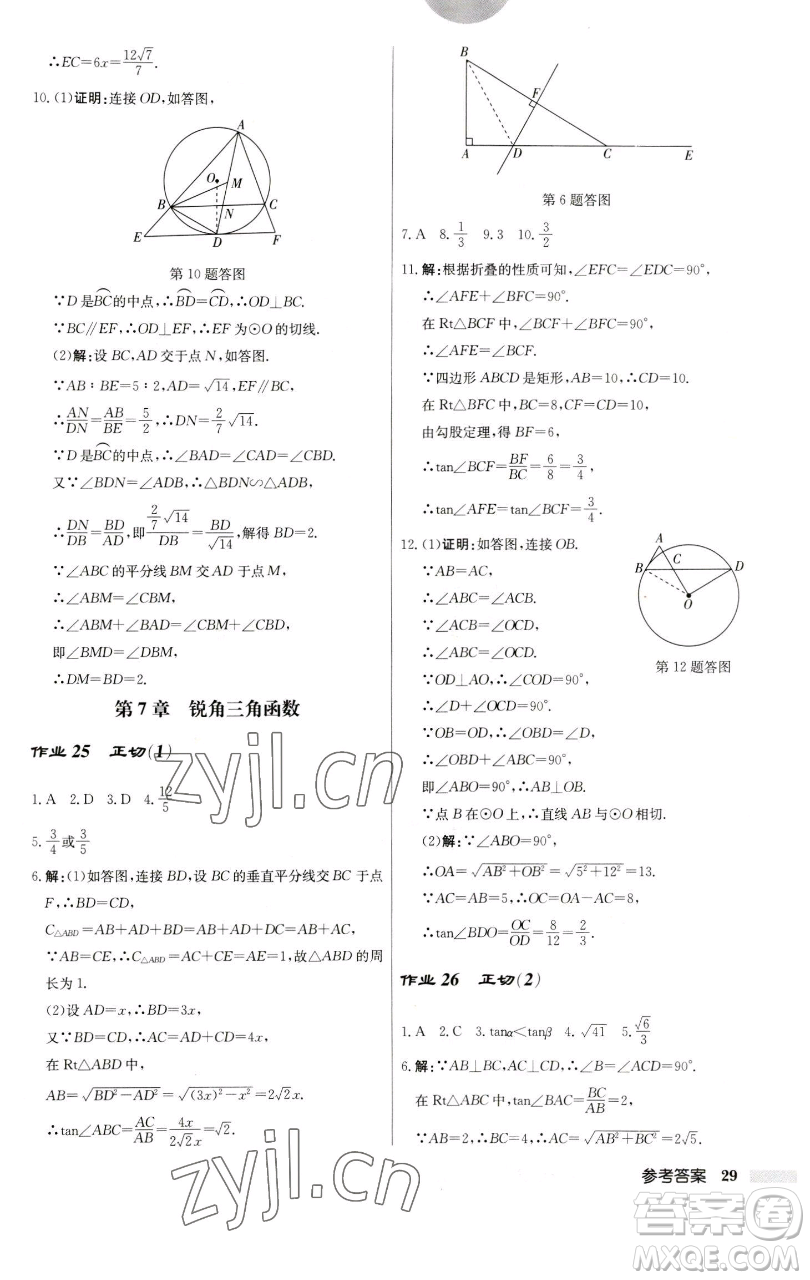 ∴EC=6x=12√7/7.
10.(1)证明:连接OD,如答图,
A
O
M
B
N
C
E
D
F
第10题答图
∵D是BC⌒的中点,∴BD⌒=CD⌒,∴OD⊥BC.
∵BC∥EF,∴OD⊥EF,∴EF为⊙O的切线.
(2)解:设BC,AD交于点N,如答图.
∵AB∶BE=5∶2,AD=√14,EF∥BC,
∴AN/DN=AB/BE=5/2,∴DN=2/7√14.
∵D是BC⌒的中点,∴∠BAD=∠CAD=∠CBD.
又∵∠BDN=∠ADB,∴△BDN∽△ADB,
∴DN/DB=BD/AD,即(2/7√14)/DB=BD/√14,解得BD=2.
∵∠ABC的平分线BM交AD于点M,
∴∠ABM=∠CBM,
∴∠ABM+∠BAD=∠CBM+∠CBD,
即∠BMD=∠DBM,
∴DM=BD=2.
第7章 锐角三角函数
作业25 正切(1)
1.A 2.D 3.D 4.12/5
5.3/4或3/5
6.解:(1)如答图,连接BD,设BC的垂直平分线交BC于点
F,∴BD=CD,
C△ABD=AB+AD+BD=AB+AD+DC=AB+AC.
∵AB=CE,∴C△ABD=AC+CE=AE=1,故△ABD的周
长为1.
(2)设AD=x,∴BD=3x,
又∵BD=CD,∴AC=AD+CD=4x,
在Rt△ABD中,
AB=√(BD²-AD²)=√((3x)²-x²)=2√2x.
∴tan∠ABC=AC/AB=4x/(2√2x)=√2.
B
F
A
D
C
E
第6题答图
7.A 8.1/3 9.3 10.3/2
11.解:根据折叠的性质可知,∠EFC=∠EDC=90°,
∴∠AFE+∠BFC=90°.
在Rt△BCF中,∠BCF+∠BFC=90°,
∴∠AFE=∠BCF.
∵四边形ABCD是矩形,AB=10,∴CD=10.
在Rt△BFC中,BC=8,CF=CD=10,
由勾股定理,得BF=6,
∴tan∠BCF=BF/BC=6/8=3/4,
∴tan∠AFE=tan∠BCF=3/4.
12.(1)证明:如答图,连接OB.
∵AB=AC,
∴∠ABC=∠ACB.
∵∠ACB=∠OCD,
∴∠ABC=∠OCD.
∵OD⊥AO,∴∠COD=90°,
∴∠D+∠OCD=90°.
∵OB=OD,∴∠OBD=∠D,
∴∠OBD+∠ABC=90°,
即∠ABO=90°,∴AB⊥OB.
∵点B在⊙O上,∴直线AB与⊙O相切.
A
B
C
D
O
第12题答图
(2)解:∵∠ABO=90°,
∴OA=√(AB²+OB²)=√(5²+12²)=13.
∵AC=AB=5,∴OC=OA-AC=8,
∴tan∠BDO=OC/OD=8/12=2/3.
作业26 正切(2)
1.A 2.C 3.tanα<tanβ 4.√41 5.√6/3
6.解:∵AB⊥BC,AC⊥CD,∴∠B=∠ACD=90°.
在Rt△ABC中,tan∠BAC=BC/AB=2,
∵AB=2,∴BC=4,∴AC=√(AB²+BC²)=2√5.
参考答案 29
zyjl.cn
zyjl.cn
答案圈
MXQE.COM